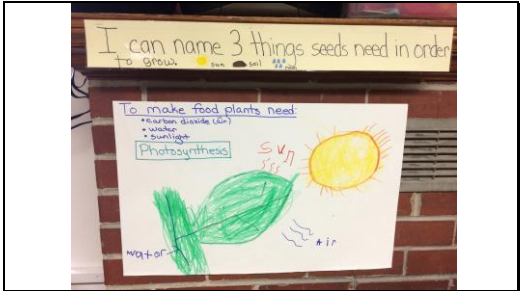 I can name 3 things seeds need in order
to grow. sun soil
To make food plants need:
• carbon dioxide (air)
• water
• sunlight
Photosynthesis
Sun
Air
water